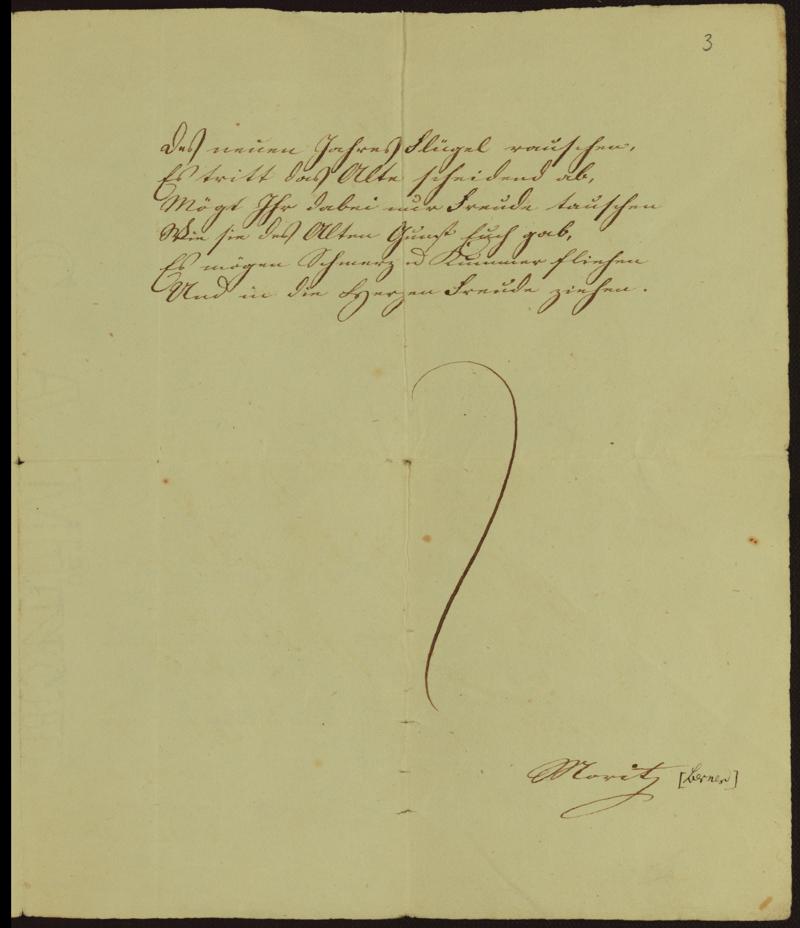 3
Des neuen Jahres Flügel rauschen,
Es tritt das Alte scheidend ab,
Mögt Ihr dabei nur Freude tauschen
Wie sie des Alten Gunst Euch gab,
Es mögen Schmerz u Kummer fliehen
Und in die Herzen Freude ziehen.
Moritz [Berner]